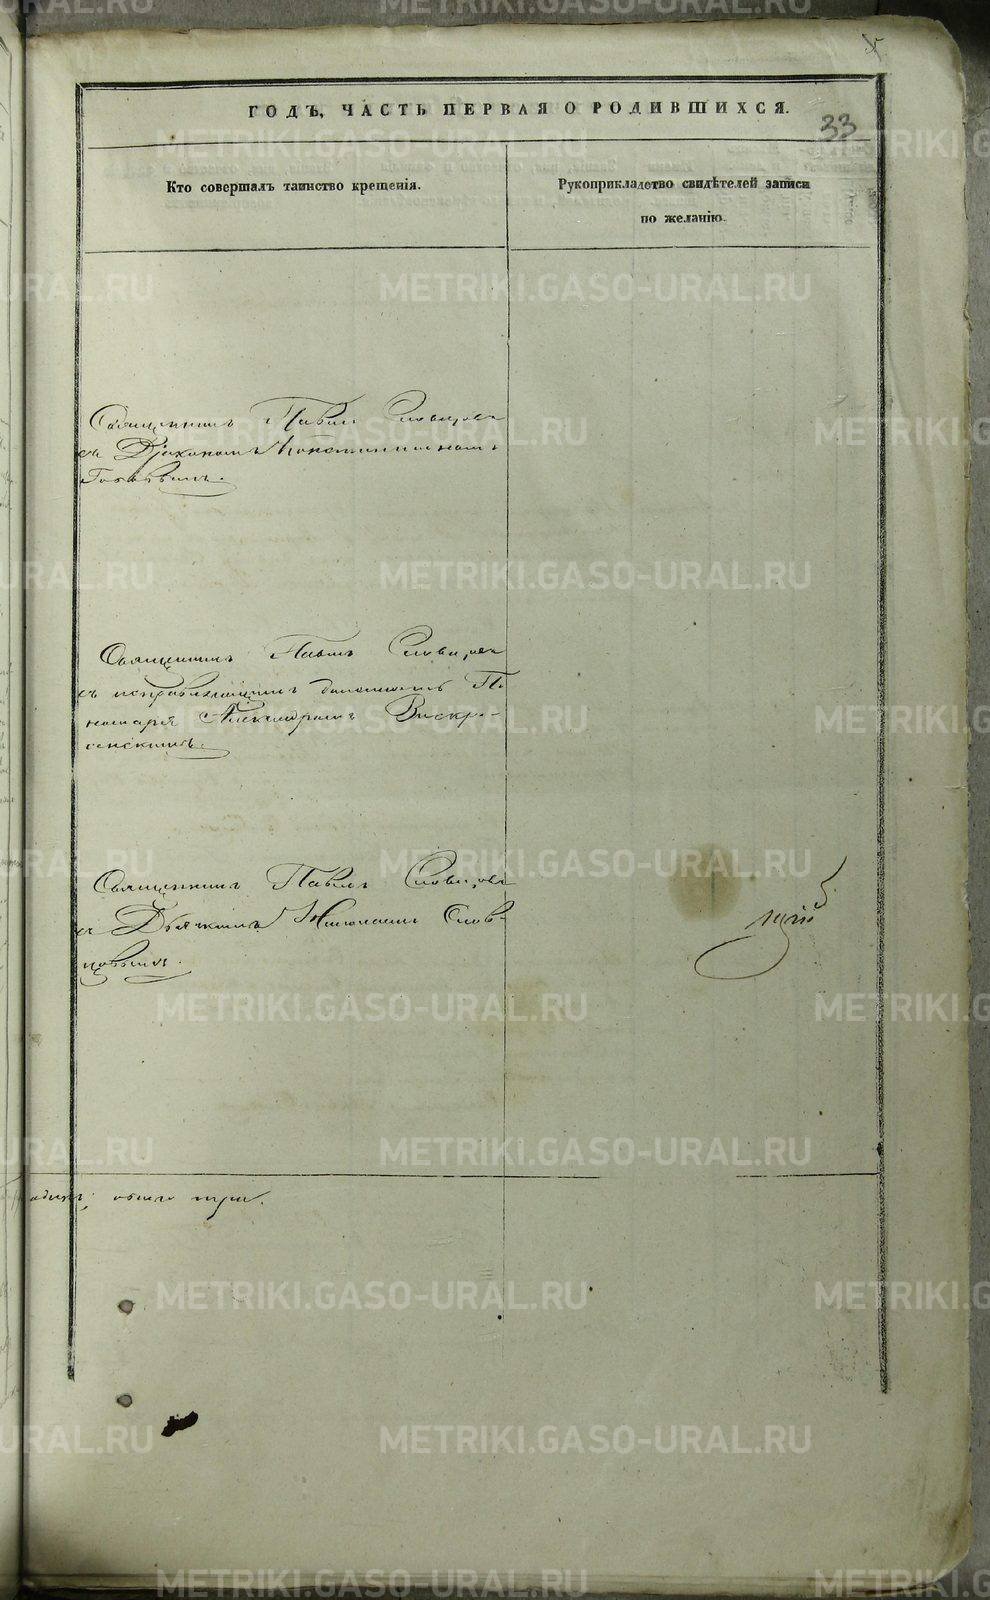 33
ГОДЪ, ЧАСТЬ ПЕРВАЯ О РОДИВШИХСЯ.
Кто совершалъ таинство крещенія.
Рукоприкладство свидѣтелей записи
по желанію.
Священникъ Павелъ Словцовъ
съ Діакономъ Константиномъ
Священникъ Павелъ Словцовъ
съ исправляющимъ должность По-
номаря Александромъ Воскре-
сенскимъ.
Священникъ Павелъ Словцовъ
съ Дьячкомъ Николаемъ Слов-
цовымъ.
обоего три.
METRIKI.GASO-URAL.RU